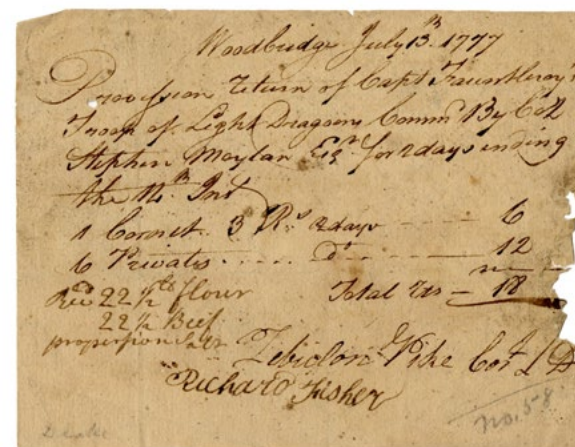 Woodbridge July 13th 1777
Provission return of Capt Fauntleroy's
Troop of Light Dragoons Commd By Coll
Stephen Moylan Esqr for 2 days ending
the 14th Inst
1 Cornet 3 Rs 2 days ---- 6
6 Privates ..... Do ---- 12
Total Rs - 18
Recd 22 1/2 lb flour
22 1/2 Beef
proportion Salt
Zebulon Pike Cort L D
Richard Fisher
no. 58